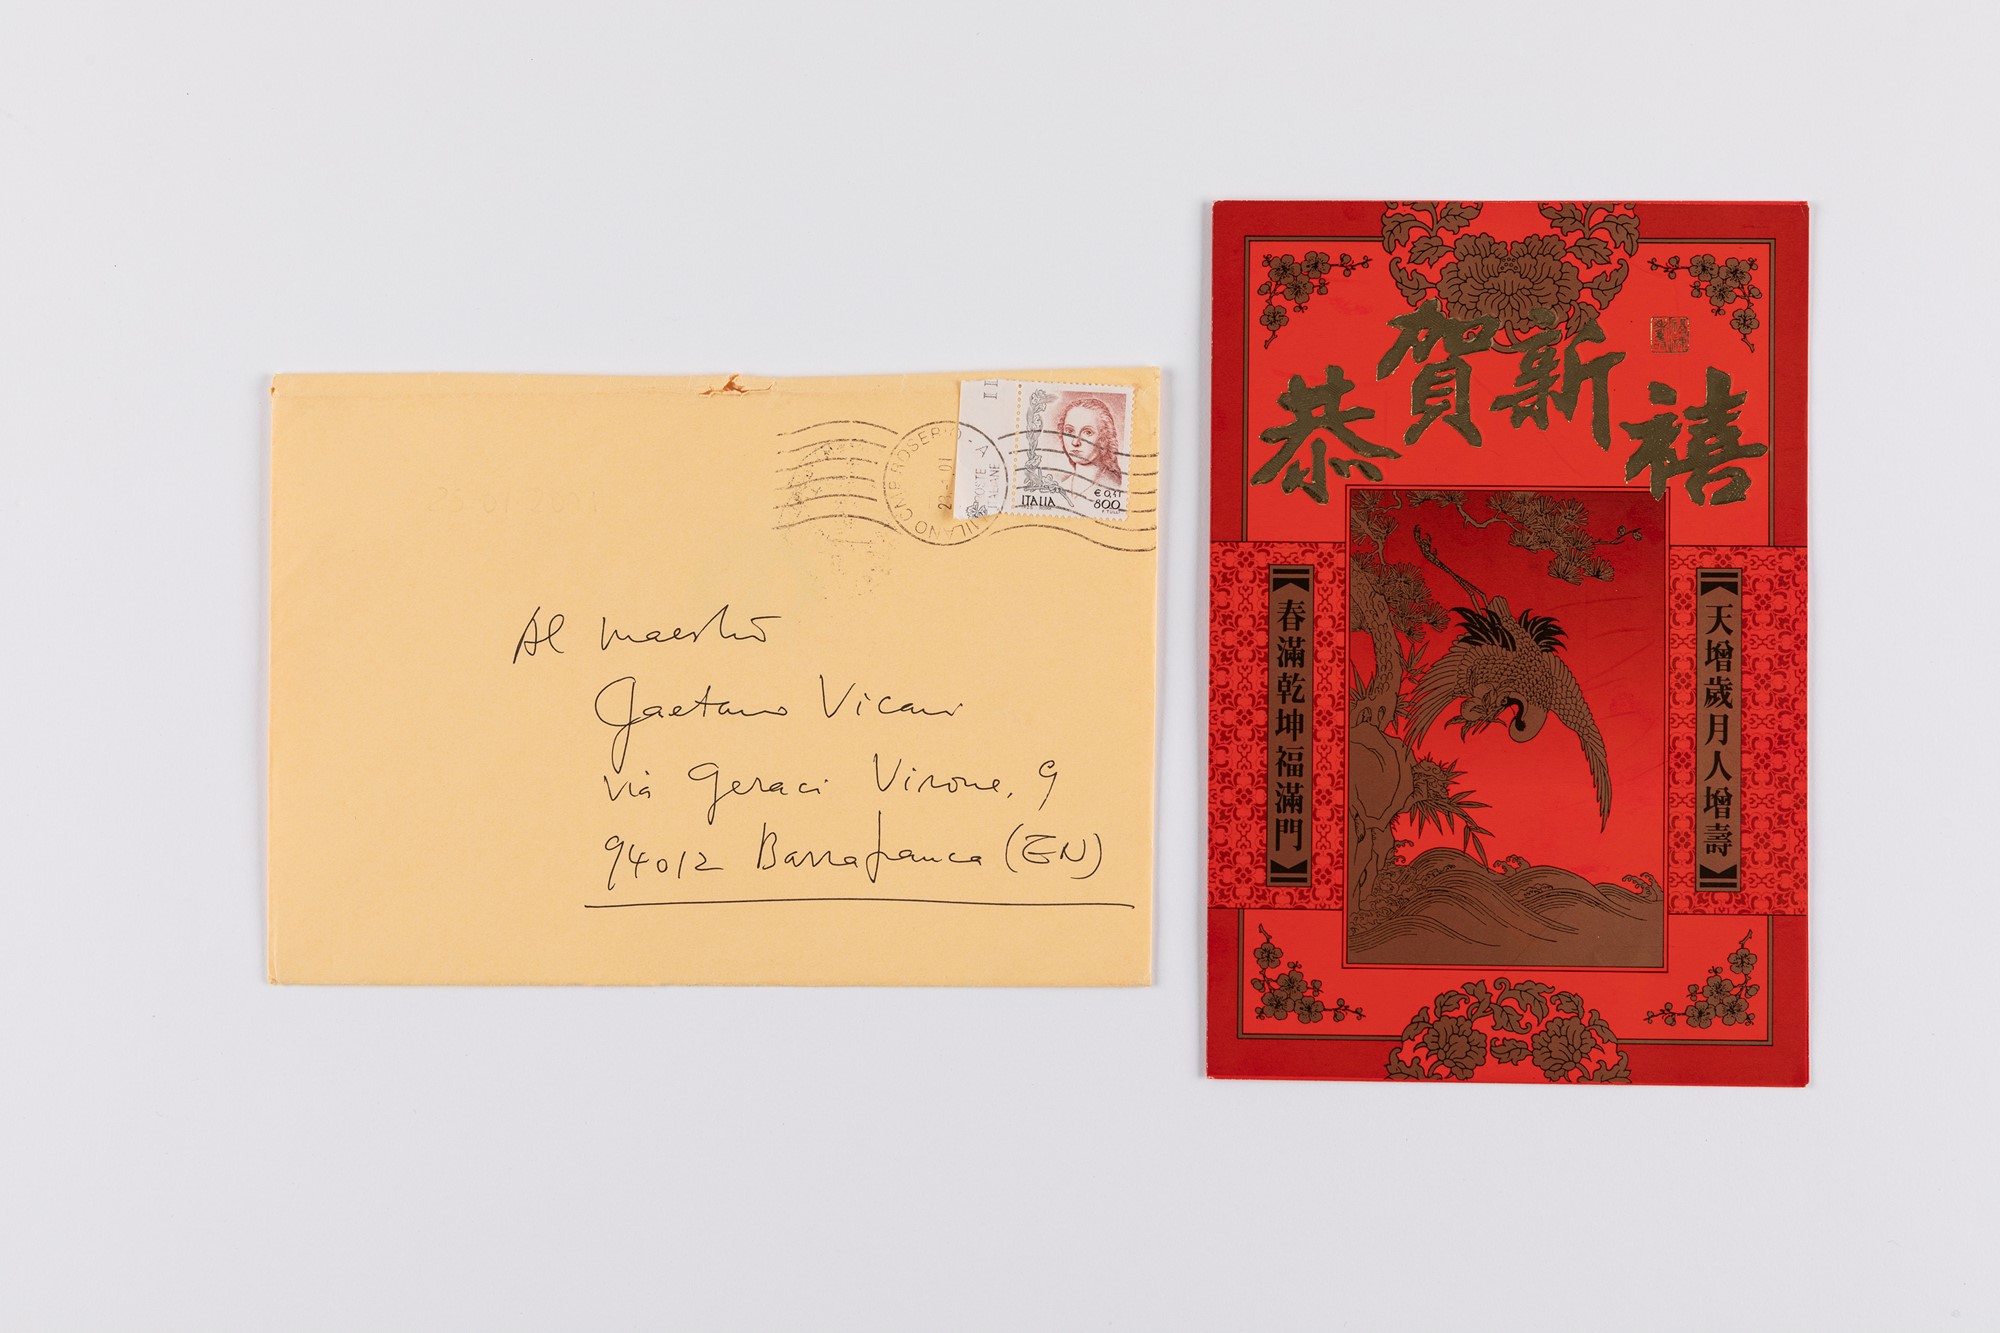 MILANO CMP ROSERIO - A
POSTE
ITALIANE
ITALIA
€ 0,41
800
Al Maestro
Gaetano Vicari
Via Geraci Virone, 9
94012 Barrafranca (EN)
恭賀新禧
天增歲月人增壽
春滿乾坤福滿門